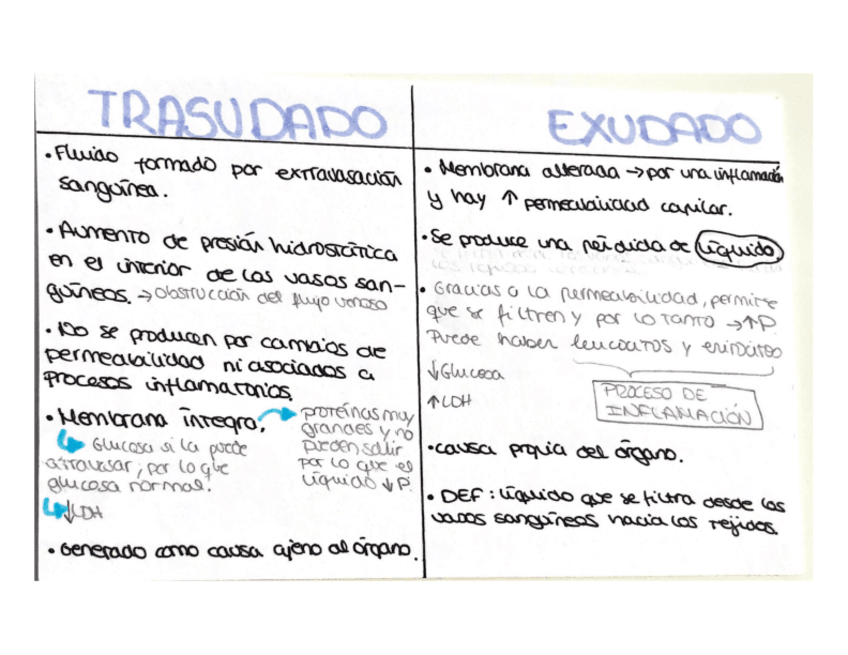 TRASUDADO
• Fluido formado por extravasación
sanguínea.
• Aumento de presión hidrostática
en el interior de los vasos san-
guíneos. → Obstrucción del flujo venoso
• No se producen por cambios de
permeabilidad ni asociados a
procesos inflamatorios.
• Membrana íntegra.
proteínas muy
grandes y no
pueden salir
por lo que el
líquido ↓P.
Glucosa si la puede
atravesar, por lo que
glucosa normal.
↓LDH
• Generado como causa ajeno al órgano.
EXUDADO
• Membrana alterada → por una inflamación
y hay ↑ permeabilidad capilar.
• Se produce una pérdida de líquido
• Gracias a la permeabilidad, permite
que se filtren y por lo tanto → ↑P.
Puede haber leucocitos y
↓Glucosa
↑LDH
PROCESO DE
INFLAMACIÓN
• causa propia del órgano.
• DEF: líquido que se filtra desde los
vasos sanguíneos hacia los tejidos.